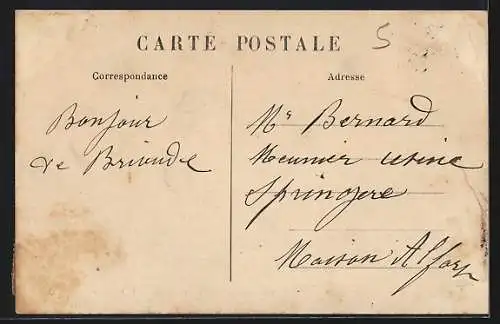 CARTE POSTALE
5
Correspondance
Adresse
Bonjour
de Brioude
Mr Bernard
Meunier usine
Springere
Maison Alfort